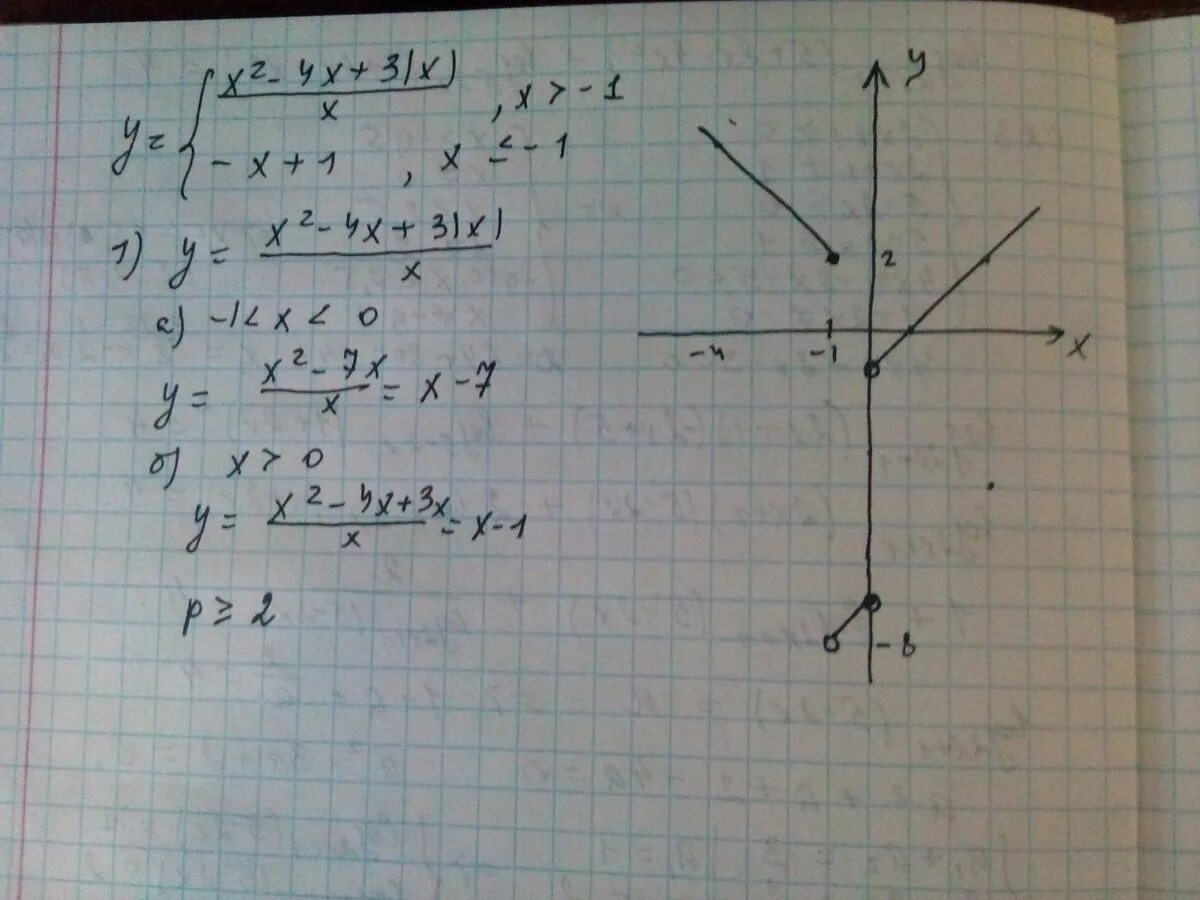 y = { (x² - 4x + 3|x|)/x , x > -1
-x + 1 , x ≤ -1
1) y = (x² - 4x + 3|x|)/x
а) -1 < x < 0
y = (x² - 7x)/x = x - 7
б) x > 0
y = (x² - 4x + 3x)/x = x - 1
p ≥ 2
y
2
-4
-1
x
-8